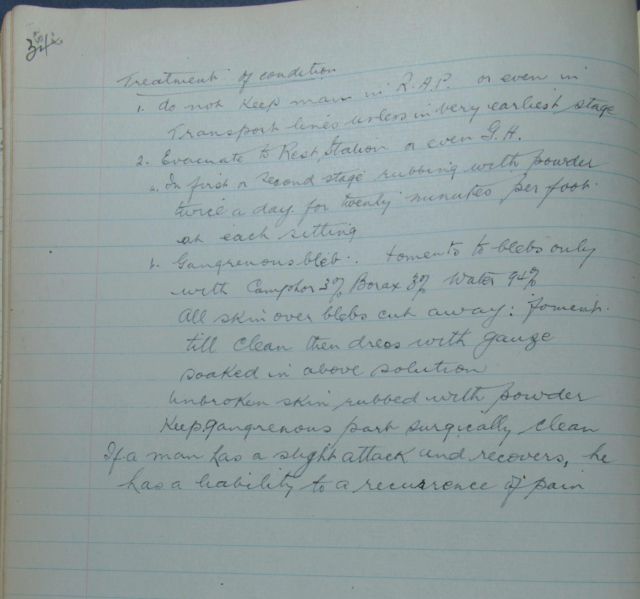 Treatment of condition
1. do not keep man in R.A.P. or even in
Transport lines unless in very earliest stage
2. Evacuate to Rest Station or even G.H.
a. In first or second stage rubbing with powder
twice a day for twenty minutes per foot
at each sitting
b. Gangrenous bleb. foments to blebs only
with Camphor 3% Borax 3% Water 94%
All skin over blebs cut away: foment
till clean then dress with gauze
soaked in above solution
Unbroken skin rubbed with powder
Keep gangrenous part surgically clean
If a man has a slight attack and recovers, he
has a liability to a recurrence of pain